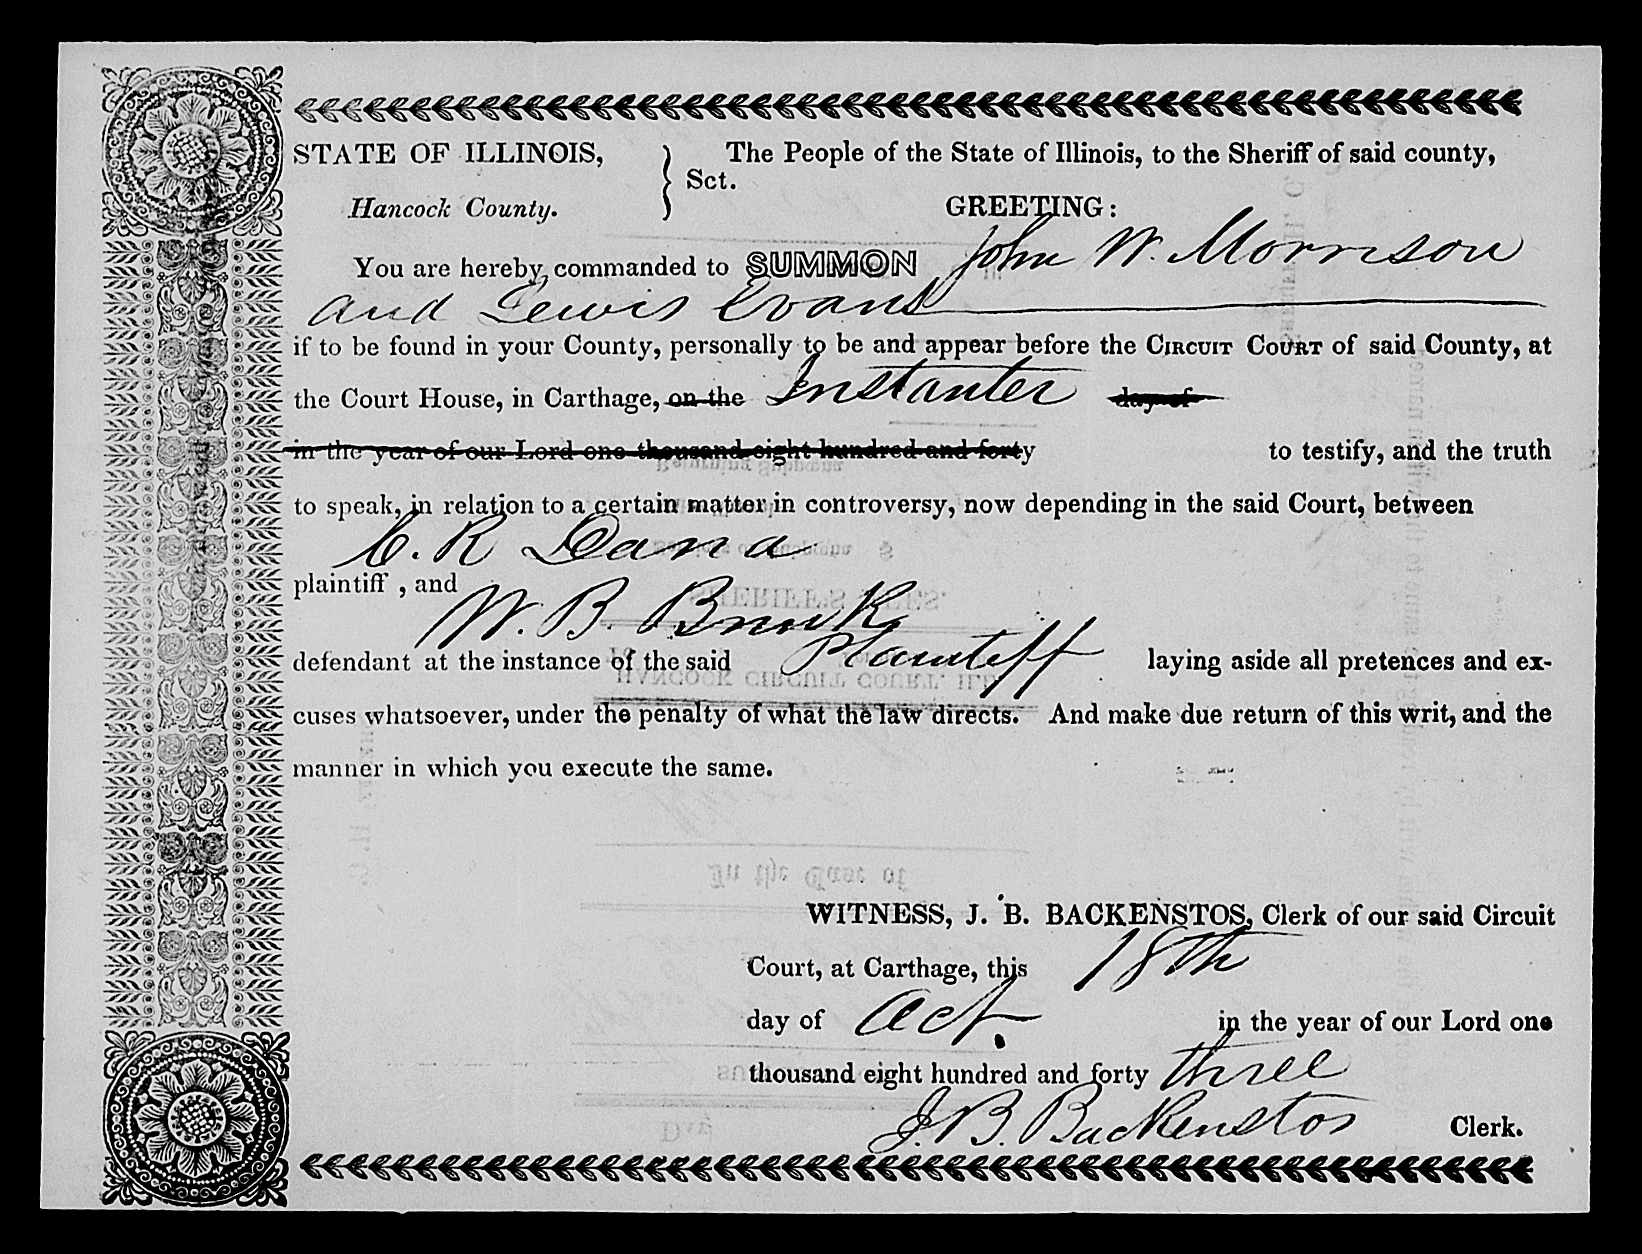 STATE OF ILLINOIS, } Sct. The People of the State of Illinois, to the Sheriff of said county,
Hancock County. GREETING:
You are hereby commanded to SUMMON John W. Morrison
and Lewis Evans
if to be found in your County, personally to be and appear before the CIRCUIT COURT of said County, at
the Court House, in Carthage, on the Instanter day of
in the year of our Lord one thousand eight hundred and forty to testify, and the truth
to speak, in relation to a certain matter in controversy, now depending in the said Court, between
C. R Dana
plaintiff , and
W. B. Brink
defendant at the instance of the said Plaintiff laying aside all pretences and ex-
cuses whatsoever, under the penalty of what the law directs. And make due return of this writ, and the
manner in which you execute the same.
WITNESS, J. B. BACKENSTOS, Clerk of our said Circuit
Court, at Carthage, this 18th
day of Oct. in the year of our Lord one
thousand eight hundred and forty three
J. B. Backenstos Clerk.